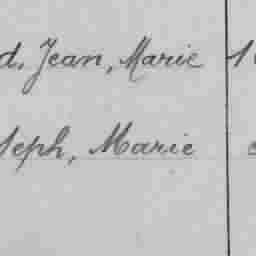 d. Jean, Marie 1
seph, Marie